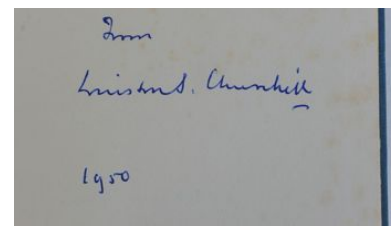 From
Winston S. Churchill
1950